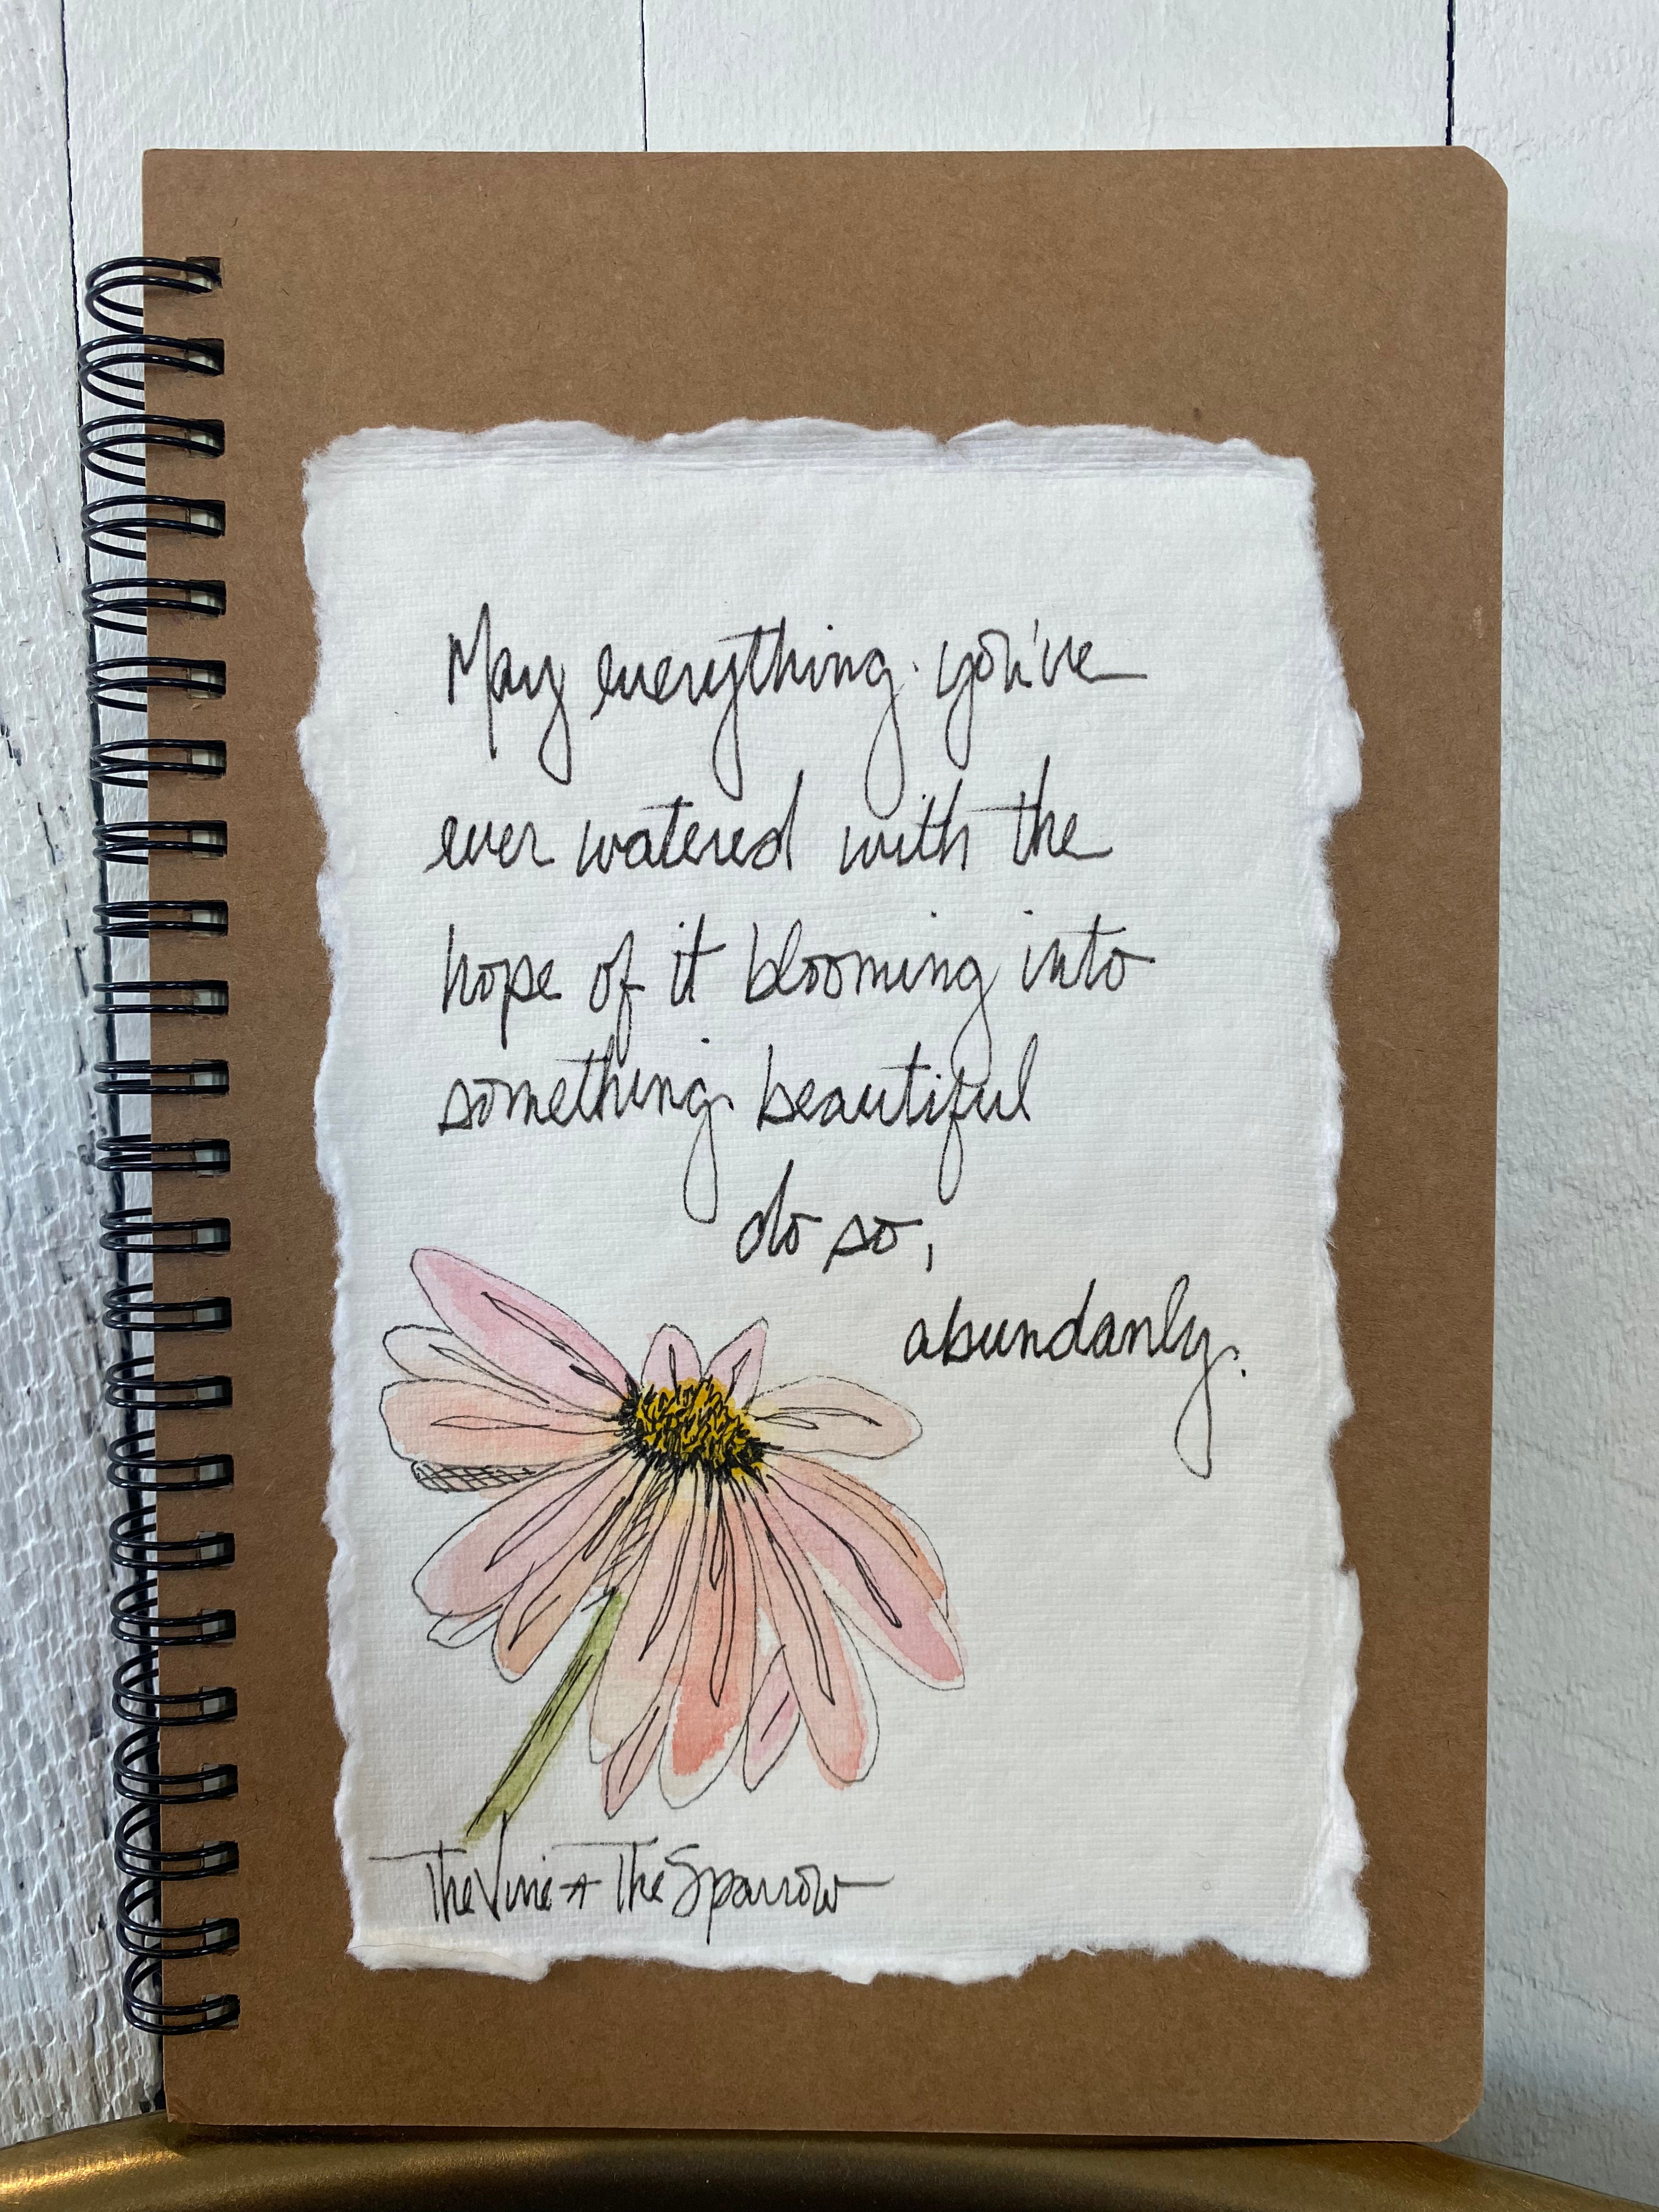 May everything you've
ever watered with the
hope of it blooming into
something beautiful
do so,
abundanly.
The Vine + The Sparrow